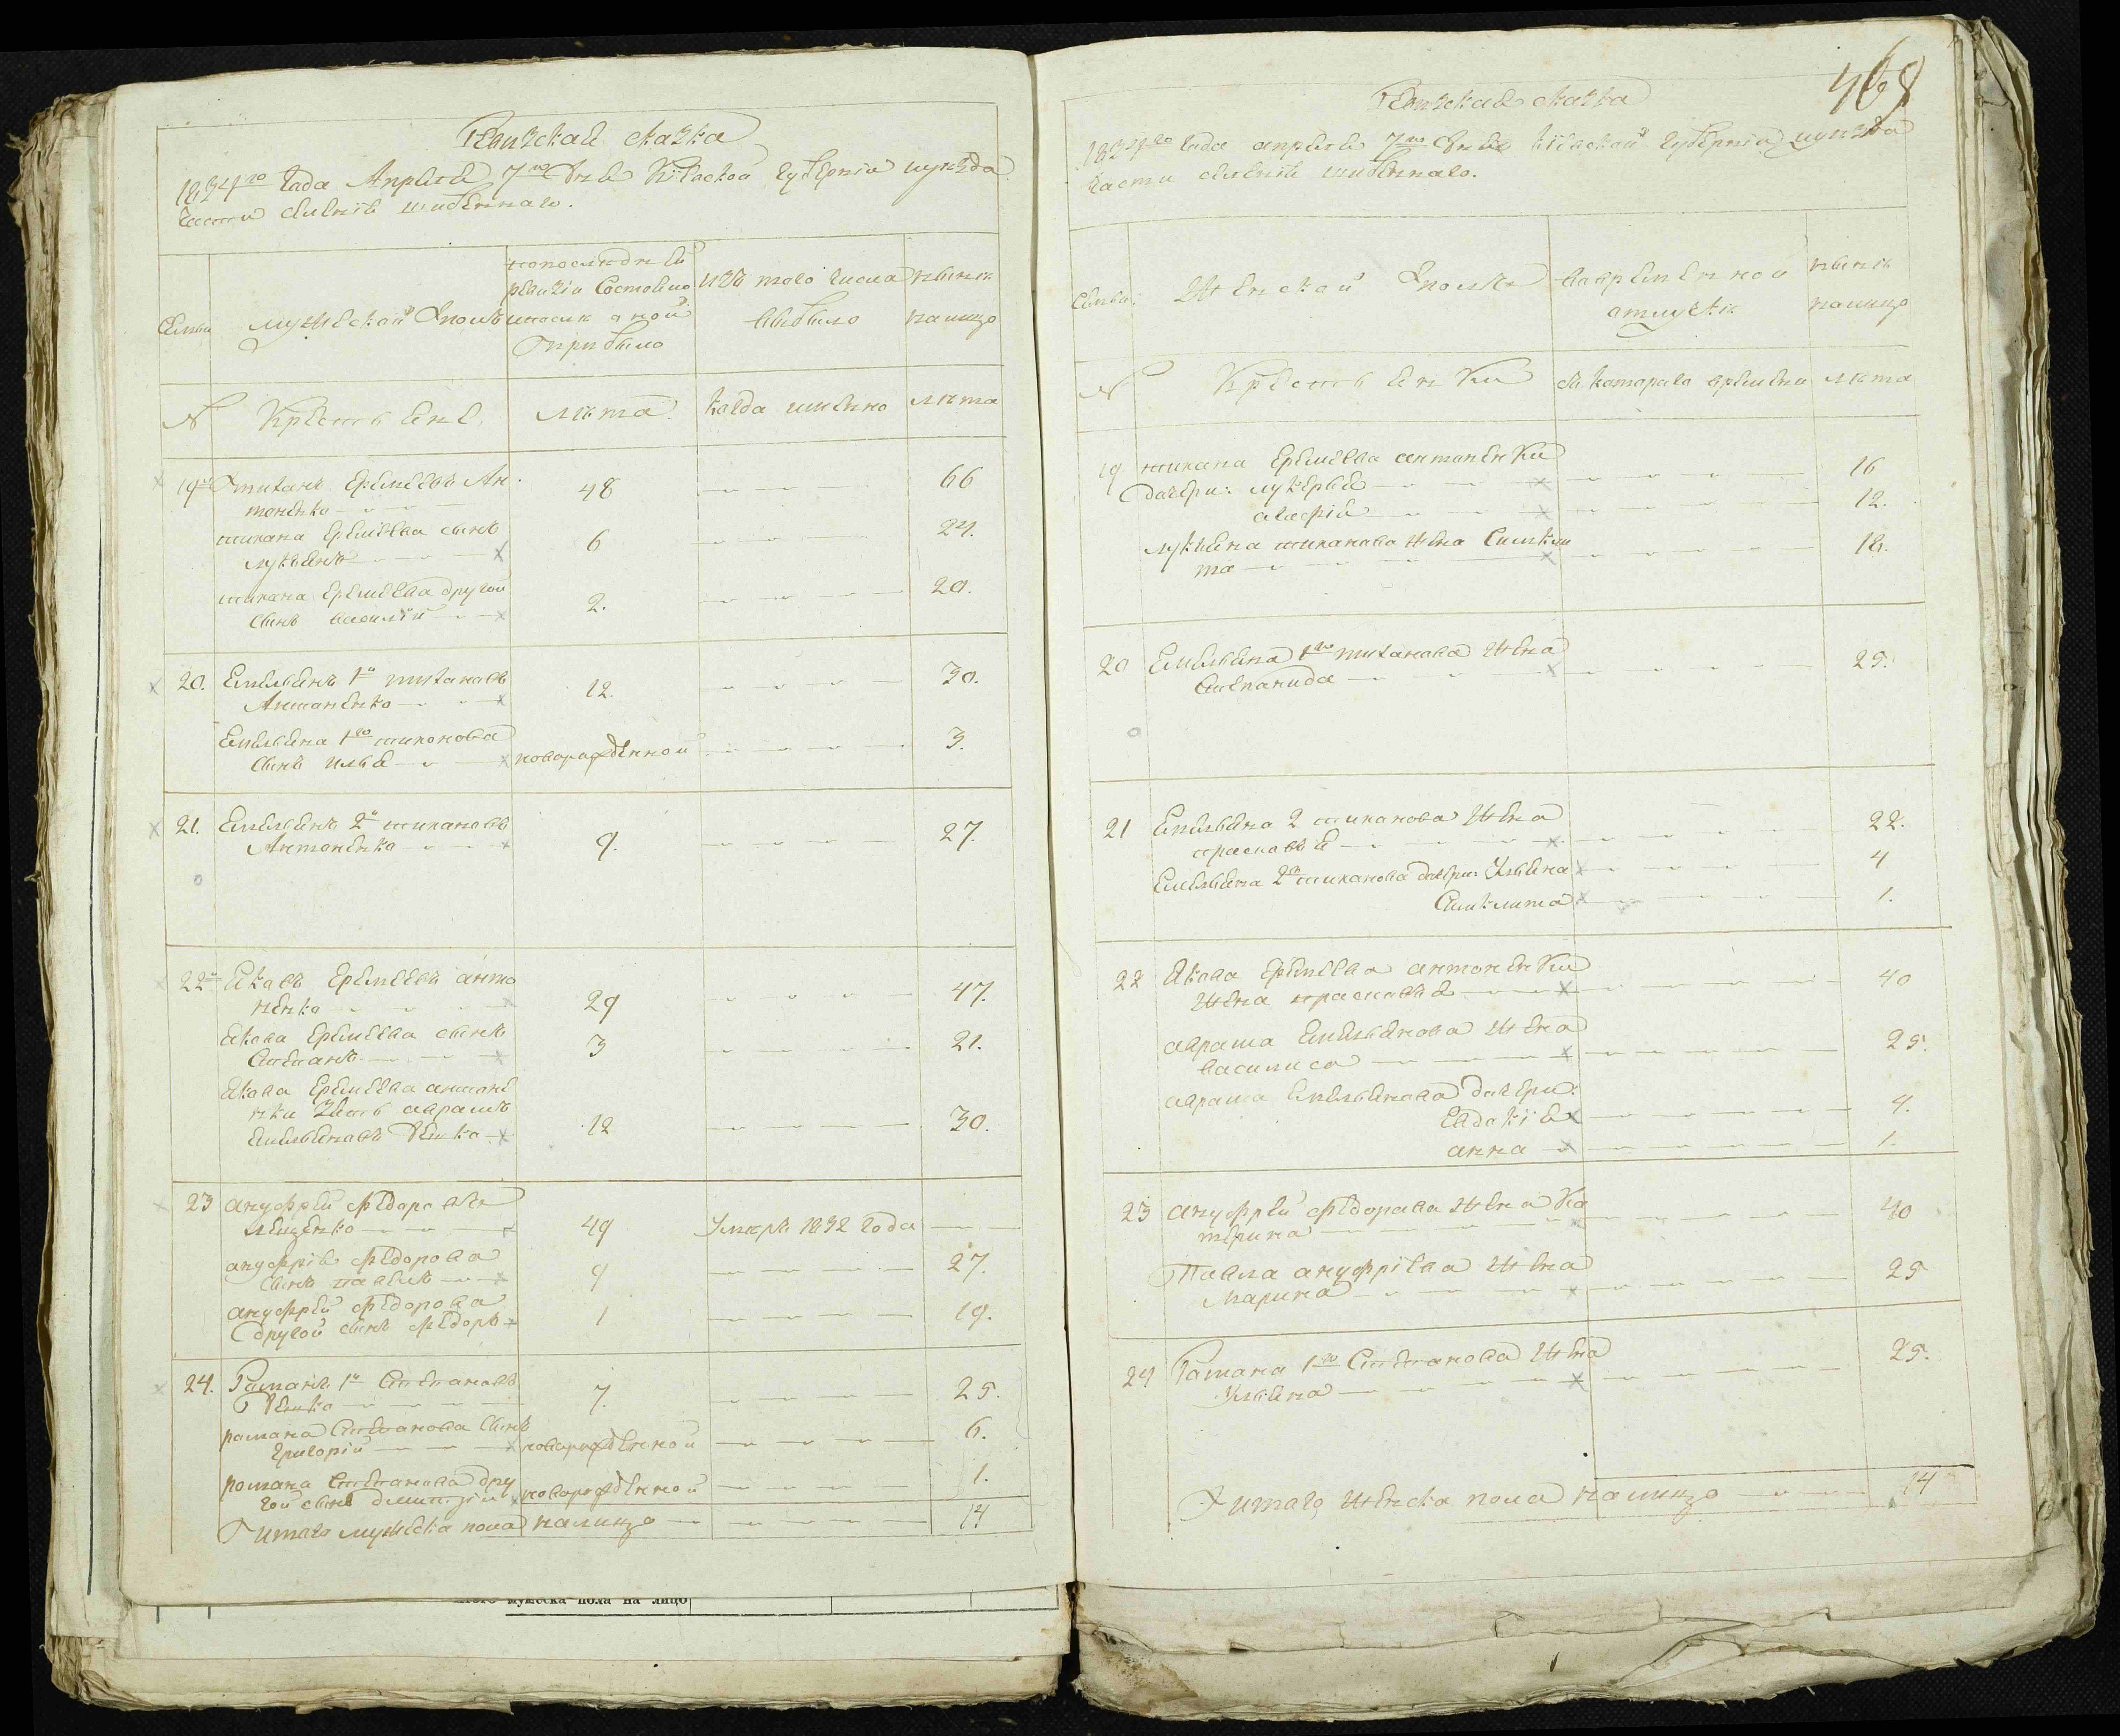 Ревизская сказка
1834го Года Апреля 7го дня Киевской губернии уѣзда
части селения
Семьи
мужеской полъ
попоследней
ревизіи Состояло
ипосле оной
прибыло
изъ того числа
выбыло
нынѣ
налицо
№
Крестьяне
лѣта
Когда именно
лѣта
19й тихонъ Еремѣевъ Ан
тоненко
48
66
тихона Еремѣева сынъ
лукьянъ
6
24.
тихона Еремѣева другой
Сынъ василій
2.
20.
20. Емельянъ 1й тихановъ
Антоненко
12.
30.
Емельяна 1го тихонова
Сынъ илья
новорожденной
3.
21. Емельянъ 2й тихановъ
Антоненко
9.
27.
22й Яковъ Еремѣевъ анто
ненко
29
47.
Якова Еремѣева сынъ
Степанъ
3
21.
Якова Еремѣева антоне
нки Зять аврамъ
Емельяновъ
12
30.
23 ануфрей Федоровъ
49
Умеръ 1832 Года
ануфрія Федорова
Сынъ павелъ
9
27.
ануфрей Федорова
другой сынъ Федоръ
1
19.
24. Романъ 1й Степановъ
7.
25.
романа Степанова Сынъ
григорій
новорожденной
6.
романа Степанова дру
гой сынъ дмитрій
новорожденной
1.
итого мужеска пола налицо
14
итого мужеска пола на лицо
468
Ревизская сказка
1834го Года апреля 7го дня Кіевской губерніи уѣзда
части селенія
Семьи
Женской полъ
вовременной
отлучке
нынѣ
налицо
№
Крестьянки
съ Которого времени
лѣта
19 тихона Еремѣева антоненки
дочери: лукерья
16
агафія
12.
лукьяна тиханова жена Секли
та
18.
20 Емельяна 1го тиханова жена
Степанида
25.
21 Емельяна 2 тиханова жена
праскавья
22.
Емельяна 2го тиханова дочери: Ульяна
4
Секлита
1.
22 Якова Еремѣева антоненки
жена праскавья
40
аврама Емельянова жена
василиса
25.
аврама Емельянова дочери:
Евдокія
4.
анна
1.
23 ануфрей Федорова жена Ка
терина
40
Павла ануфріева жена
Марина
25
24 Романа 1го Степанова жена
Ульяна
25.
итого женска пола налицо
14